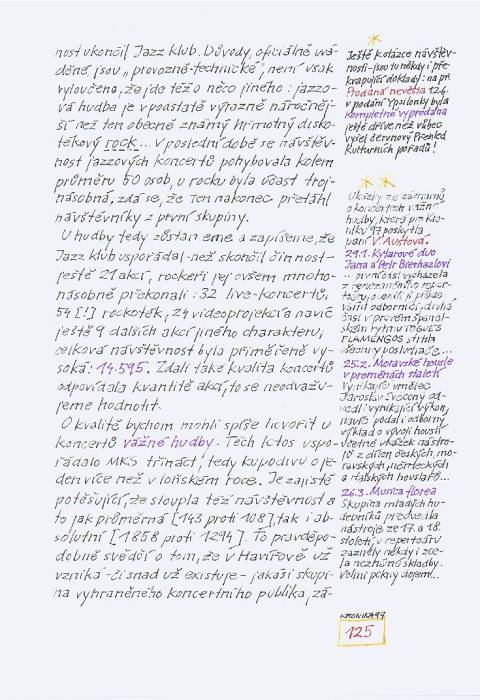 nost ukončil Jazz klub. Důvody, oficiálně uvá-
děné jsou „provozně-technické“, není však
vyloučeno, že jde též o něco jiného: jazzo-
vá hudba je v podstatě výrazně náročněj-
ší než ten obecně známý hřmotný disko-
tékový rock... v poslední době se návštěv-
nost jazzových koncertů pohybovala kolem
průměru 50 osob, u rocku byla účast troj-
násobná, zdá se, že ten nakonec přetáhl
návštěvníky z první skupiny.
U hudby tedy zůstaneme a zapišme, že
Jazz klub uspořádal - než skončil činnost -
ještě 21 akcí, rockeři jej ovšem mnoho-
násobně překonali: 32 live-koncertů,
54 [!] rockoték, 24 videoprojekcí a navíc
ještě 9 dalších akcí jiného charakteru,
celková návštěvnost byla přiměřeně vy-
soká: 14.595. Zdali také kvalita koncertů
odpovídala kvantitě akcí, to se neodvažu-
jeme hodnotit.
O kvalitě bychom mohli spíše hovořit u
koncertů vážné hudby. Těch letos uspo-
řádalo MKS třináct, tedy kupodivu o je-
den více než v loňském roce. Je zajisté
potěšující, že stoupla též návštěvnost a
to jak průměrná [143 proti 108], tak i ab-
solutní [1858 proti 1294]. To pravděpo-
dobně svědčí o tom, že v Havířově už
vzniká - či snad už existuje - jakási skupi-
na vyhraněného koncertního publika, zá-
Ještě k otázce návštěv-
nosti - jsou tu někdy i pře-
kvapující doklady: na př.
Prodaná nevěsta 12.6.
v podání Ypsilonky byla
kompletně vyprodána
ještě dříve, než vůbec
vyšel červnový Přehled
kulturních pořadů!
Ukázky ze záznamů
o koncertech vážné
hudby, které pro Kro-
niku 97 poskytla
paní V. Austová.
29.1. Kytarové duo
Jana a Petr Bierhazlovi
... první část vycházela
z
části v pravém španěl-
ském rytmu
FLAMENGOS strhla
všechny posluchače...
25.2. Moravské housle
v proměnách staletí
Vynikající umělec
Jaroslav Svěcený od-
vedl i vynikající výkon,
navíc podal i odborný
výklad o vývoji houslí
včetně ukázek nástro-
jů z dílen českých, mo-
ravských, německých
a italských houslařů...
26.3. Musica florea
Skupina mladých hu-
debníků předvedla
nástroje ze 17. a 18.
století, v repertoáru
zazněly někdy i zce-
la neznámé skladby.
Velmi pěkný dojem!...
KRONIKA 97
125